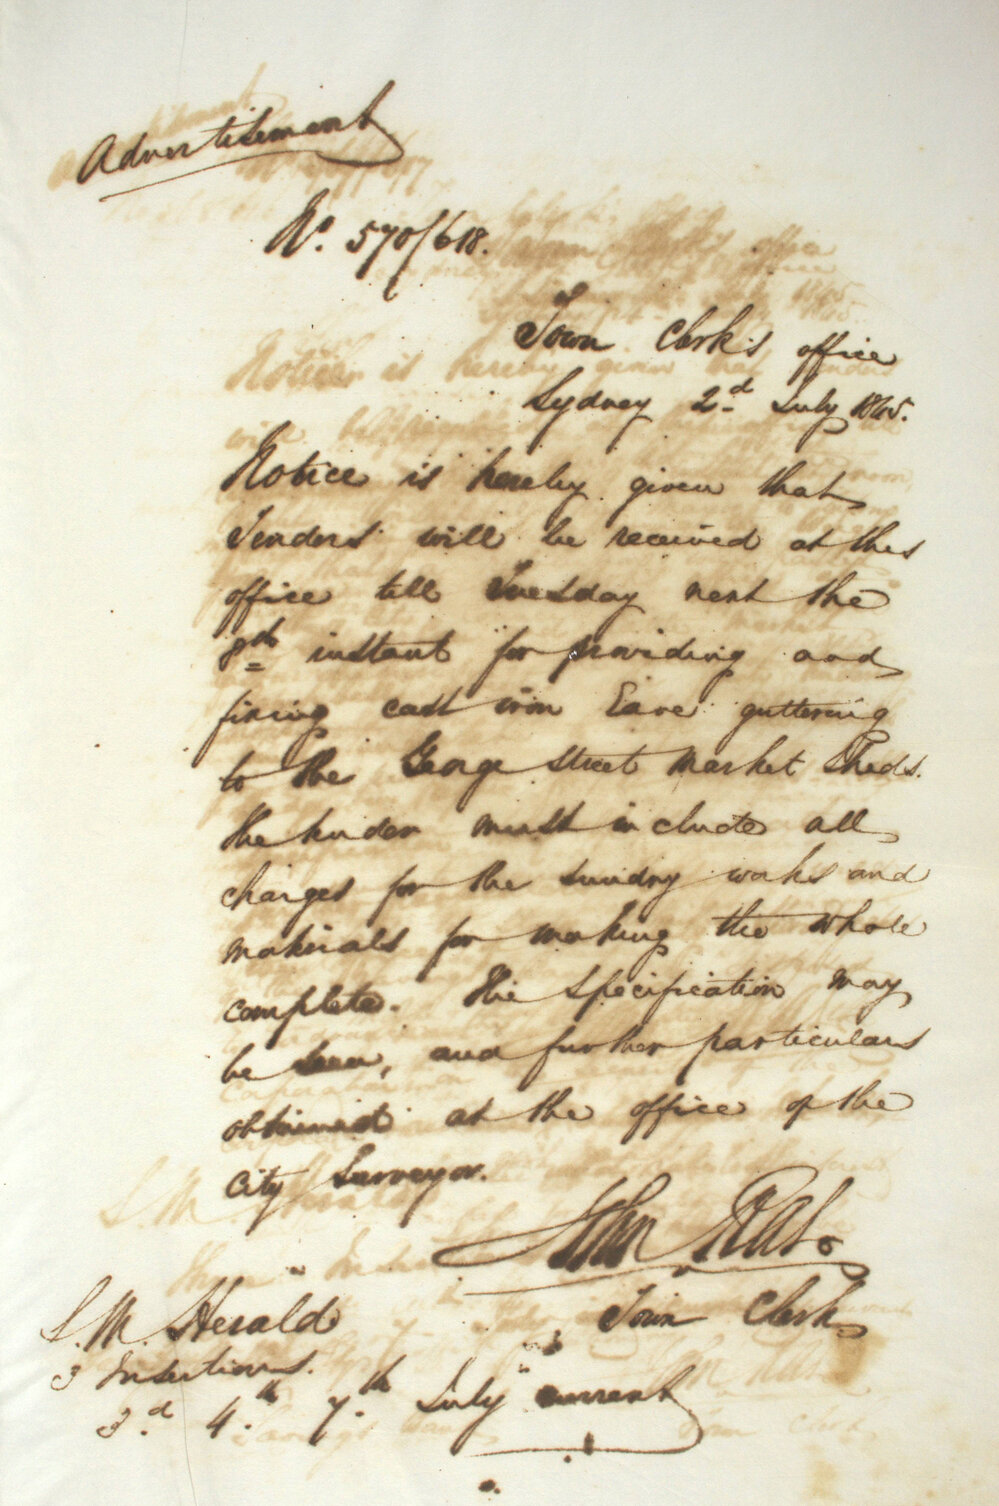 Advertisement
No. 570/618.
Town Clerk's office
Sydney 2d July 1845.
Notice is hereby given that
Tenders will be received at this
office till Tuesday next the
8th instant for providing and
fixing cast iron Eave guttering
to the George Street Market Sheds.
the tender must include all
charges for the sundry works and
materials for making the whole
complete. The specification may
be seen, and further particulars
obtained at the office of the
City Surveyor.
John Rae
Town Clerk
S. M. Herald
3 Insertions.
3d. 4th. 7th. July current